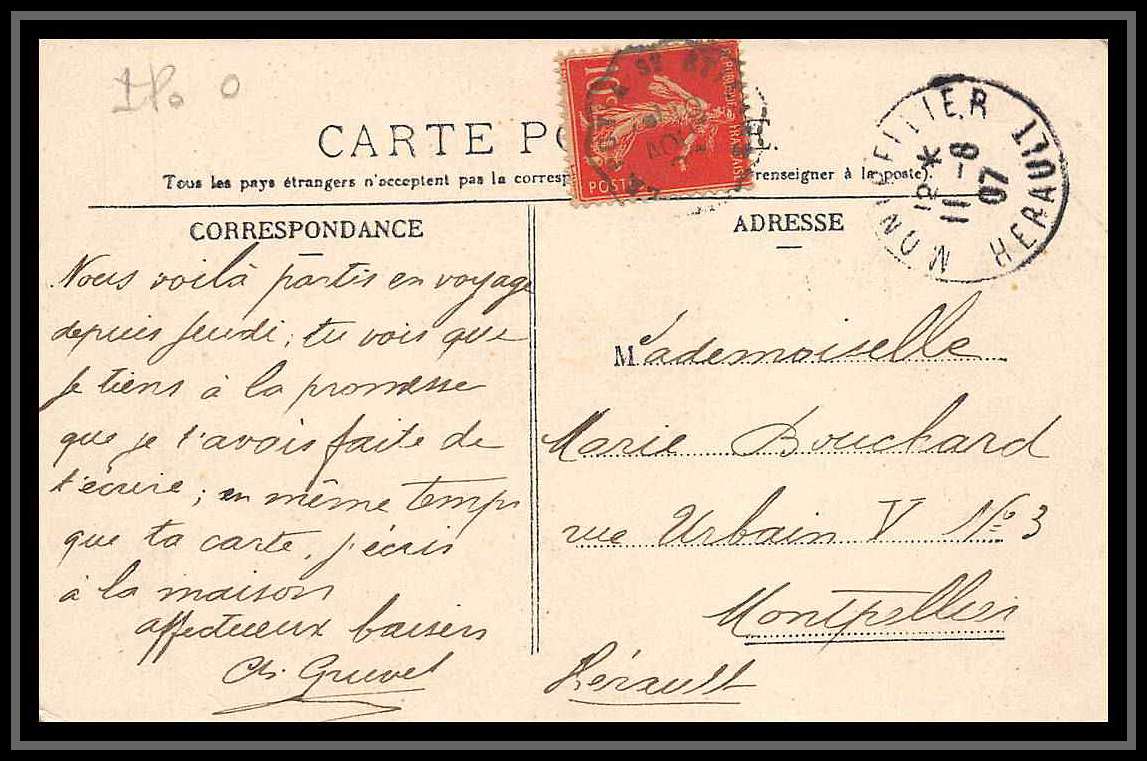 CARTE PO E.
Tous les pays étrangers n'acceptent pas la corresp renseigner à la poste).
10c
REPUBLIQUE FRANÇAISE
POSTE
MONTPELLIER
12 *
11 -8
07
HERAULT
CORRESPONDANCE
Nous voilà partis en voyage
depuis Jeudi; tu vois que
je tiens à la promesse
que je t'avais faite de
t'écrire; en même temps
que ta carte, j'écris
à la maison
affectueux baisers
Ch. Gruvel
ADRESSE
Mademoiselle
Marie Bouchard
rue Urbain V No 3
Montpellier
Hérault